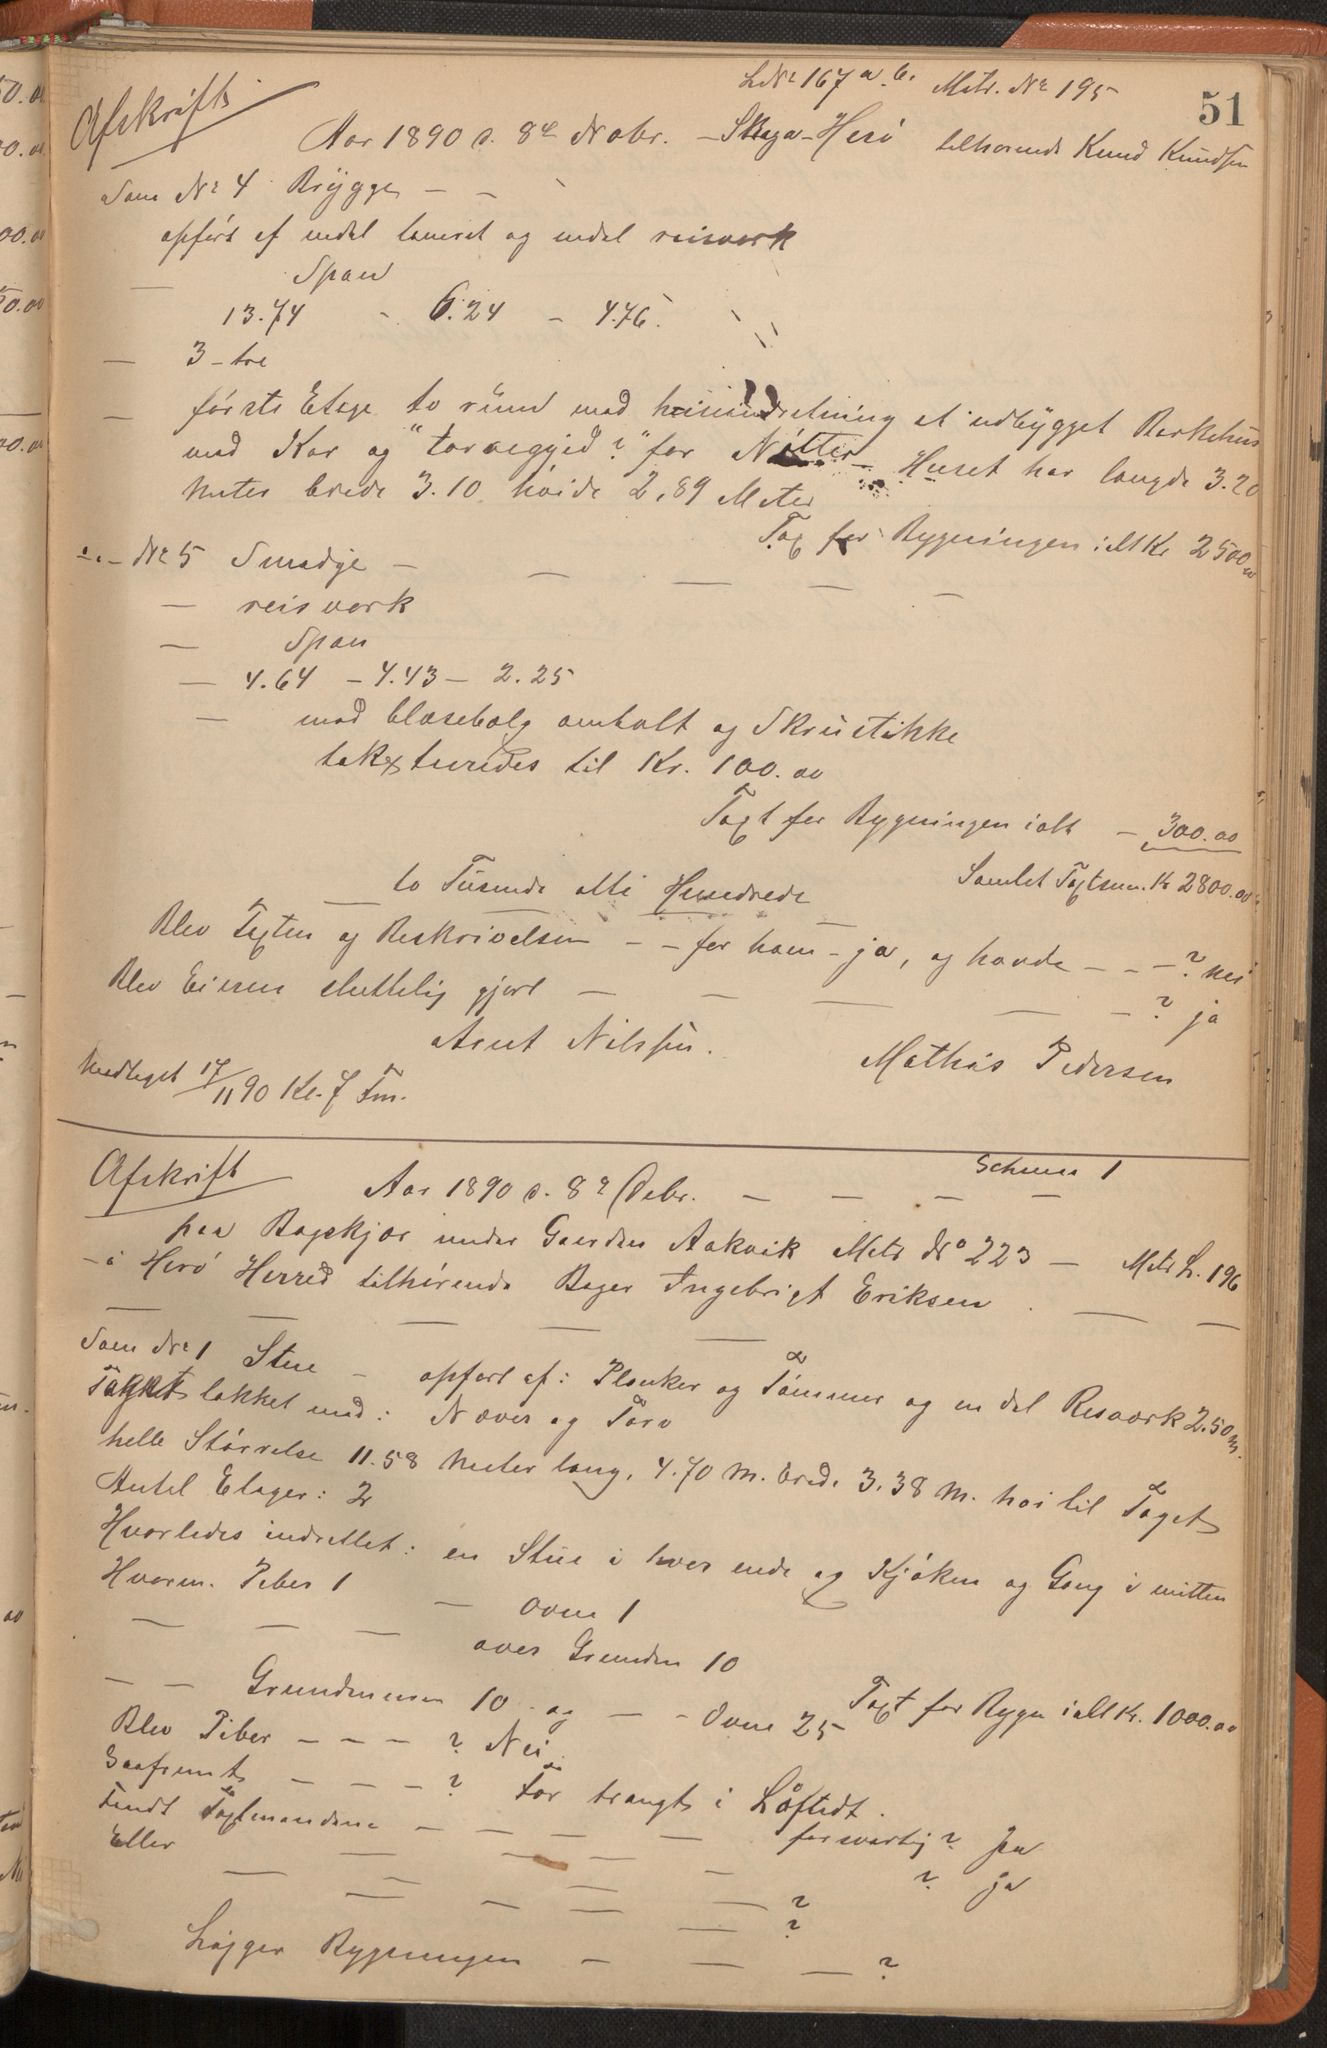 51
LNr 167 a.b. Matr. Nr 195
Afskrift
Aar 1890 d. 8de Nobr. – Skaga – Herö tilhørende Knud Knudsen
Som Nr 4 Brÿgge – –
opført af endel tømret og endel reisverk
– Spaan
13.74 – 6.24 – 4.76.
– 3 – tre
– første Etage to rum med heisindretning et udbygget Barkehus
med Kar og "            ?" for Nötter – Huset har længde 3.20
Meter brede 3.10 höide 2,89 Meter
Tax for Bygningen ialt Kr 2500.00
–"– Nr 5 Smedje – – – – –
– reisverk
– Spaan
– 4.64 – 4.43 – 2.25
– med blæsebælg ambolt og Skruestikke
taxtueredes til Kr. 100.00
Taxt for Bygningen ialt – 300.00
Samlet Taxtsum. Kr 2800.00
to Tusinde otte Hundrede
Blev Taxten og Beskrivelsen – – for ham – ja, og havde – – – ? nei
Blev Eieren sluttelig gjort – – – – – ? ja
Arnt Nilssen. Mathias Pedersen
Medtaget 17/11 90 Kl. 7 Fm.
Afskrift
Schema 1
Aar 1890 d. 8de Debr. – – – –
paa Bagskjær under Gaarden Aakvik Matr No 223 – Matr L. 196
– i Herö Herred tilhørende Bager Ingebrigt Eriksen. – –
– – – – –
Som Nr 1 Stue – opført af: Planker og Tömmer og en del Resværk 2.50 m.
Taget tækket med: Næver og Törv
helle Störrelse 11.58 Meter lang, 4.70 M. bred. 3.38 M. høi til Taget
Antal Etager: 2
Hvorledes indrettet: en Stue i hver ende og Kjøken og Gang i mitten
Hvorm. Piber 1 – Ovne 1
– – – over Grunden 10
– – Grundmuren 10 og – – Ovne 25
Taxt for Bygn ialt Kr. 1000.00
Blev Piber – – – ? Nei
Saafremt – – – ? For trangt i Löftedt.
Fandt Taxtmændene – – – – forsvarlig? Ja
Eller – – – – ? ja
– – – – ?
– – – – ?
Ligger Bygningen – – – ?